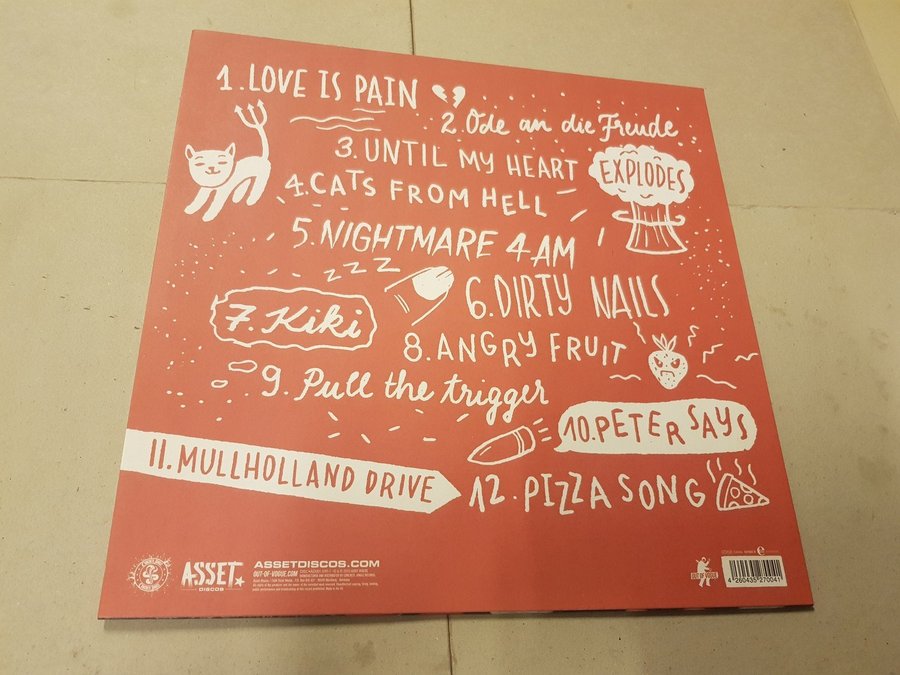 1. LOVE IS PAIN
2. Ode an die Freude
3. UNTIL MY HEART EXPLODES
4. CATS FROM HELL
5. NIGHTMARE 4 AM
ZZZZ
6. DIRTY NAILS
7. Kiki
8. ANGRY FRUIT
9. Pull the trigger
10. PETER SAYS
11. MULLHOLLAND DRIVE
12. PIZZA SONG
ASSET
DISCOS
ASSETDISCOS.COM
OUT-OF-VOGUE.COM
OUT OF VOGUE
4 260435 270041